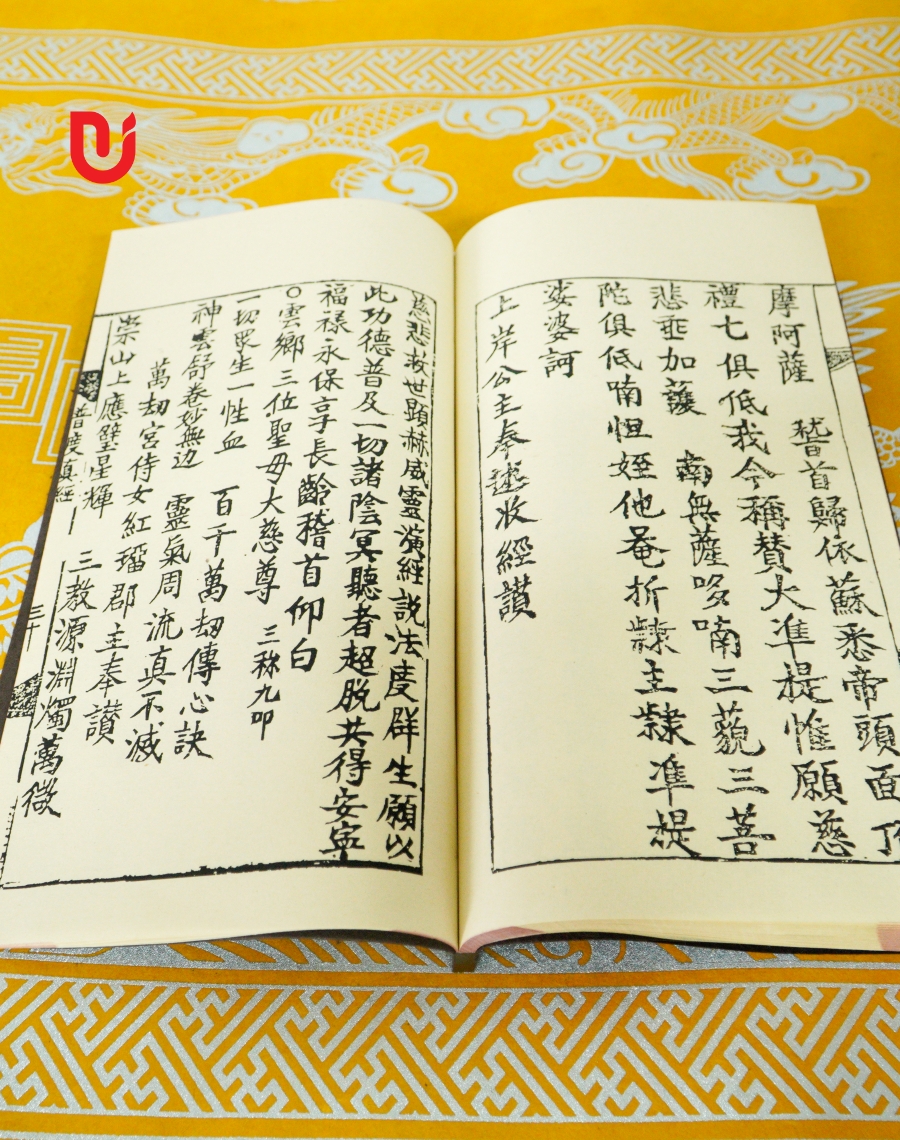 摩阿薩 稽首歸依蘇悉帝頭面
禮七俱低我今稱赞大準提惟願慈
悲垂加護 南無薩哆喃三藐三菩
陀俱低喃怛姪他菴折隸主隸準提
娑婆訶
上岸公主奉遞收經讃
慈悲救世顯赫威靈演經説法度群生願以
此功德普及一切諸陰冥聽者超脱共得安寧
福禄永保享長齡稽首仰白
○雲鄉三位聖母大慈尊 三称九叩
一切眾生一性血 百千萬刼傳心訣
神雲舒卷妙無边 靈氣周流真不滅
萬刼宮侍女紅瑠郡主奉讃
崇山上應璧星輝 三教源淵濁萬微
普度真經 三十